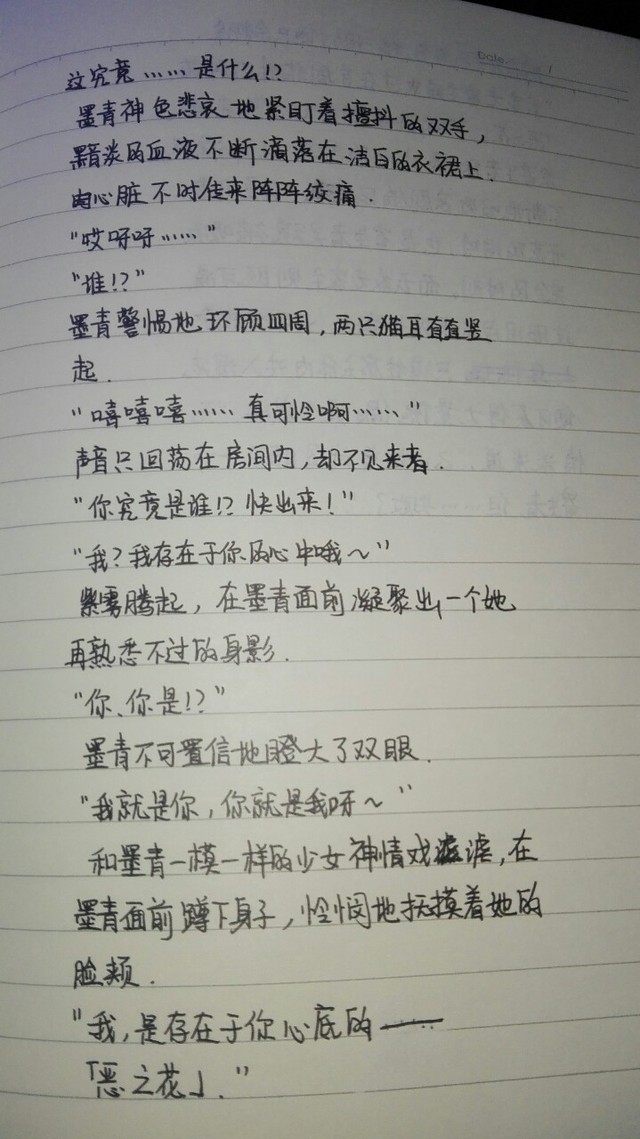 Date
这究竟……是什么!?
墨青神色悲哀地紧盯着擅抖的双手,
黯淡的血液不断滴落在洁白的衣裙上.
心脏不时传来阵阵绞痛.
"哎呀呀……"
"谁!?"
墨青警惕地环顾四周,两只猫耳直直竖
起.
"嘻嘻嘻……真可怜啊……"
声音只回荡在房间内,却不见来者.
"你究竟是谁!?快出来!"
"我?我存在于你的心中哦~"
紫雾腾起,在墨青面前凝聚出一个她
再熟悉不过的身影.
"你、你是!?"
墨青不可置信地瞪大了双眼.
"我就是你,你就是我呀~"
和墨青一模一样的少女神情戏谑,在
墨青面前蹲下身子,怜悯地抚摸着她的
脸颊.
"我,是存在于你心底的——
「恶之花」."